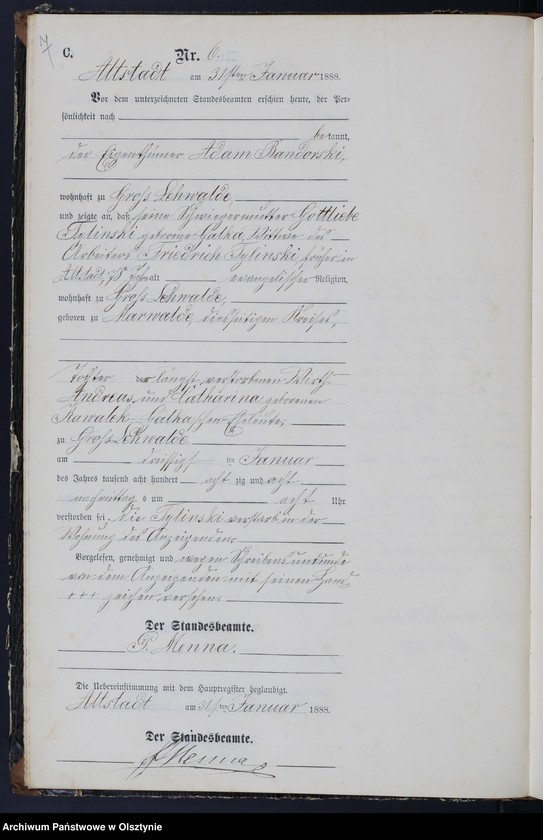 C.
Nr. 6.
Altstadt am 31sten Januar 1888.
Vor dem unterzeichneten Standesbeamten erschien heute, der Per-
sönlichkeit nach
bekannt,
der Eigenthümer Adam Bandorski,
wohnhaft zu Groß Lehwalde,
und zeigte an, daß seine Schwiegermutter Gottliebe
Tylinski geborene Galka, Wittwe des
Arbeiters Friedrich Tylinski, früher in
Altstadt, 75 Jahre alt evangelischer Religion,
wohnhaft zu Groß Lehwalde,
geboren zu Marwalde, diesseitigen Kreises,
Tochter der längst verstorbenen Wirth
Andreas und Catharina geborenen
Kawalek Galkaschen Eheleute,
zu Groß Lehwalde
am dreißigsten Januar
des Jahres tausend acht hundert acht zig und acht
nachmittags um acht Uhr
verstorben sei, die Tylinski verstarb in der
Wohnung des Anzeigenden.
Vorgelesen, genehmigt und wegen Schreibensunkunde
von dem Anzeigenden mit seinen Hand-
+++ zeichen versehen.
Der Standesbeamte.
Menna.
Die Uebereinstimmung mit dem Hauptregister beglaubigt.
Altstadt am 31sten Januar 1888.
Der Standesbeamte.
Menna
Archiwum Państwowe w Olsztynie